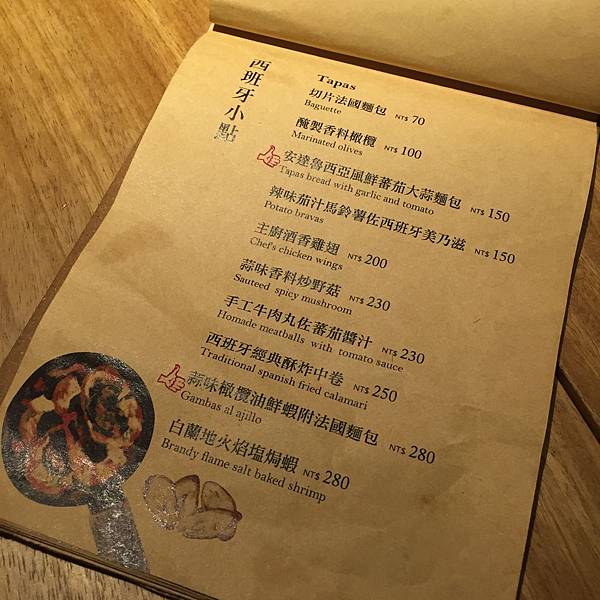 西班牙小點
Tapas
切片法國麵包 NT$ 70
Baguette
醃製香料橄欖 NT$ 100
Marinated olives
安達魯西亞風鮮蕃茄大蒜麵包 NT$ 150
Tapas bread with garlic and tomato
辣味茄汁馬鈴薯佐西班牙美乃滋 NT$ 150
Potato bravas
主廚酒香雞翅 NT$ 200
Chef's chicken wings
蒜味香料炒野菇 NT$ 230
Sauteed spicy mushroom
手工牛肉丸佐蕃茄醬汁 NT$ 230
Homade meatballs with tomato sauce
西班牙經典酥炸中卷 NT$ 250
Traditional spanish fried calamari
蒜味橄欖油鮮蝦附法國麵包 NT$ 280
Gambas al ajillo
白蘭地火焰塩焗蝦 NT$ 280
Brandy flame salt baked shrimp